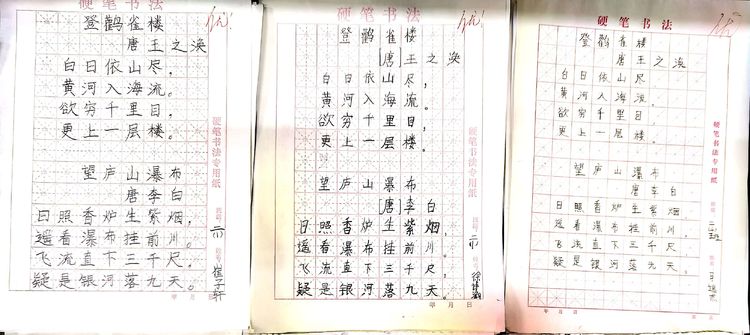 硬笔书法
优
登鹳雀楼
唐王之涣
白日依山尽，
黄河入海流。
欲穷千里目，
更上一层楼。
望庐山瀑布
唐李白
日照香炉生紫烟，
遥看瀑布挂前川。
飞流直下三千尺，
疑是银河落九天。
硬笔书法专用纸
二(1)
崔子轩
年 月 日
硬笔书法
优
登鹳雀楼
[唐]王之涣
白日依山尽，
黄河入海流。
欲穷千里目，
更上一层楼。
望庐山瀑布
[唐]李白
日照香炉生紫烟，
遥看瀑布挂前川。
飞流直下三千尺，
疑是银河落九天。
硬笔书法专用纸
二(1)
年 月 日
硬笔书法
优
登鹳雀楼
唐王之涣
白日依山尽，
黄河入海流。
欲穷千里目，
更上一层楼。
望庐山瀑布
唐李白
日照香炉生紫烟，
遥看瀑布挂前川。
飞流直下三千尺，
疑是银河落九天。
硬笔书法专用纸
年 月 日